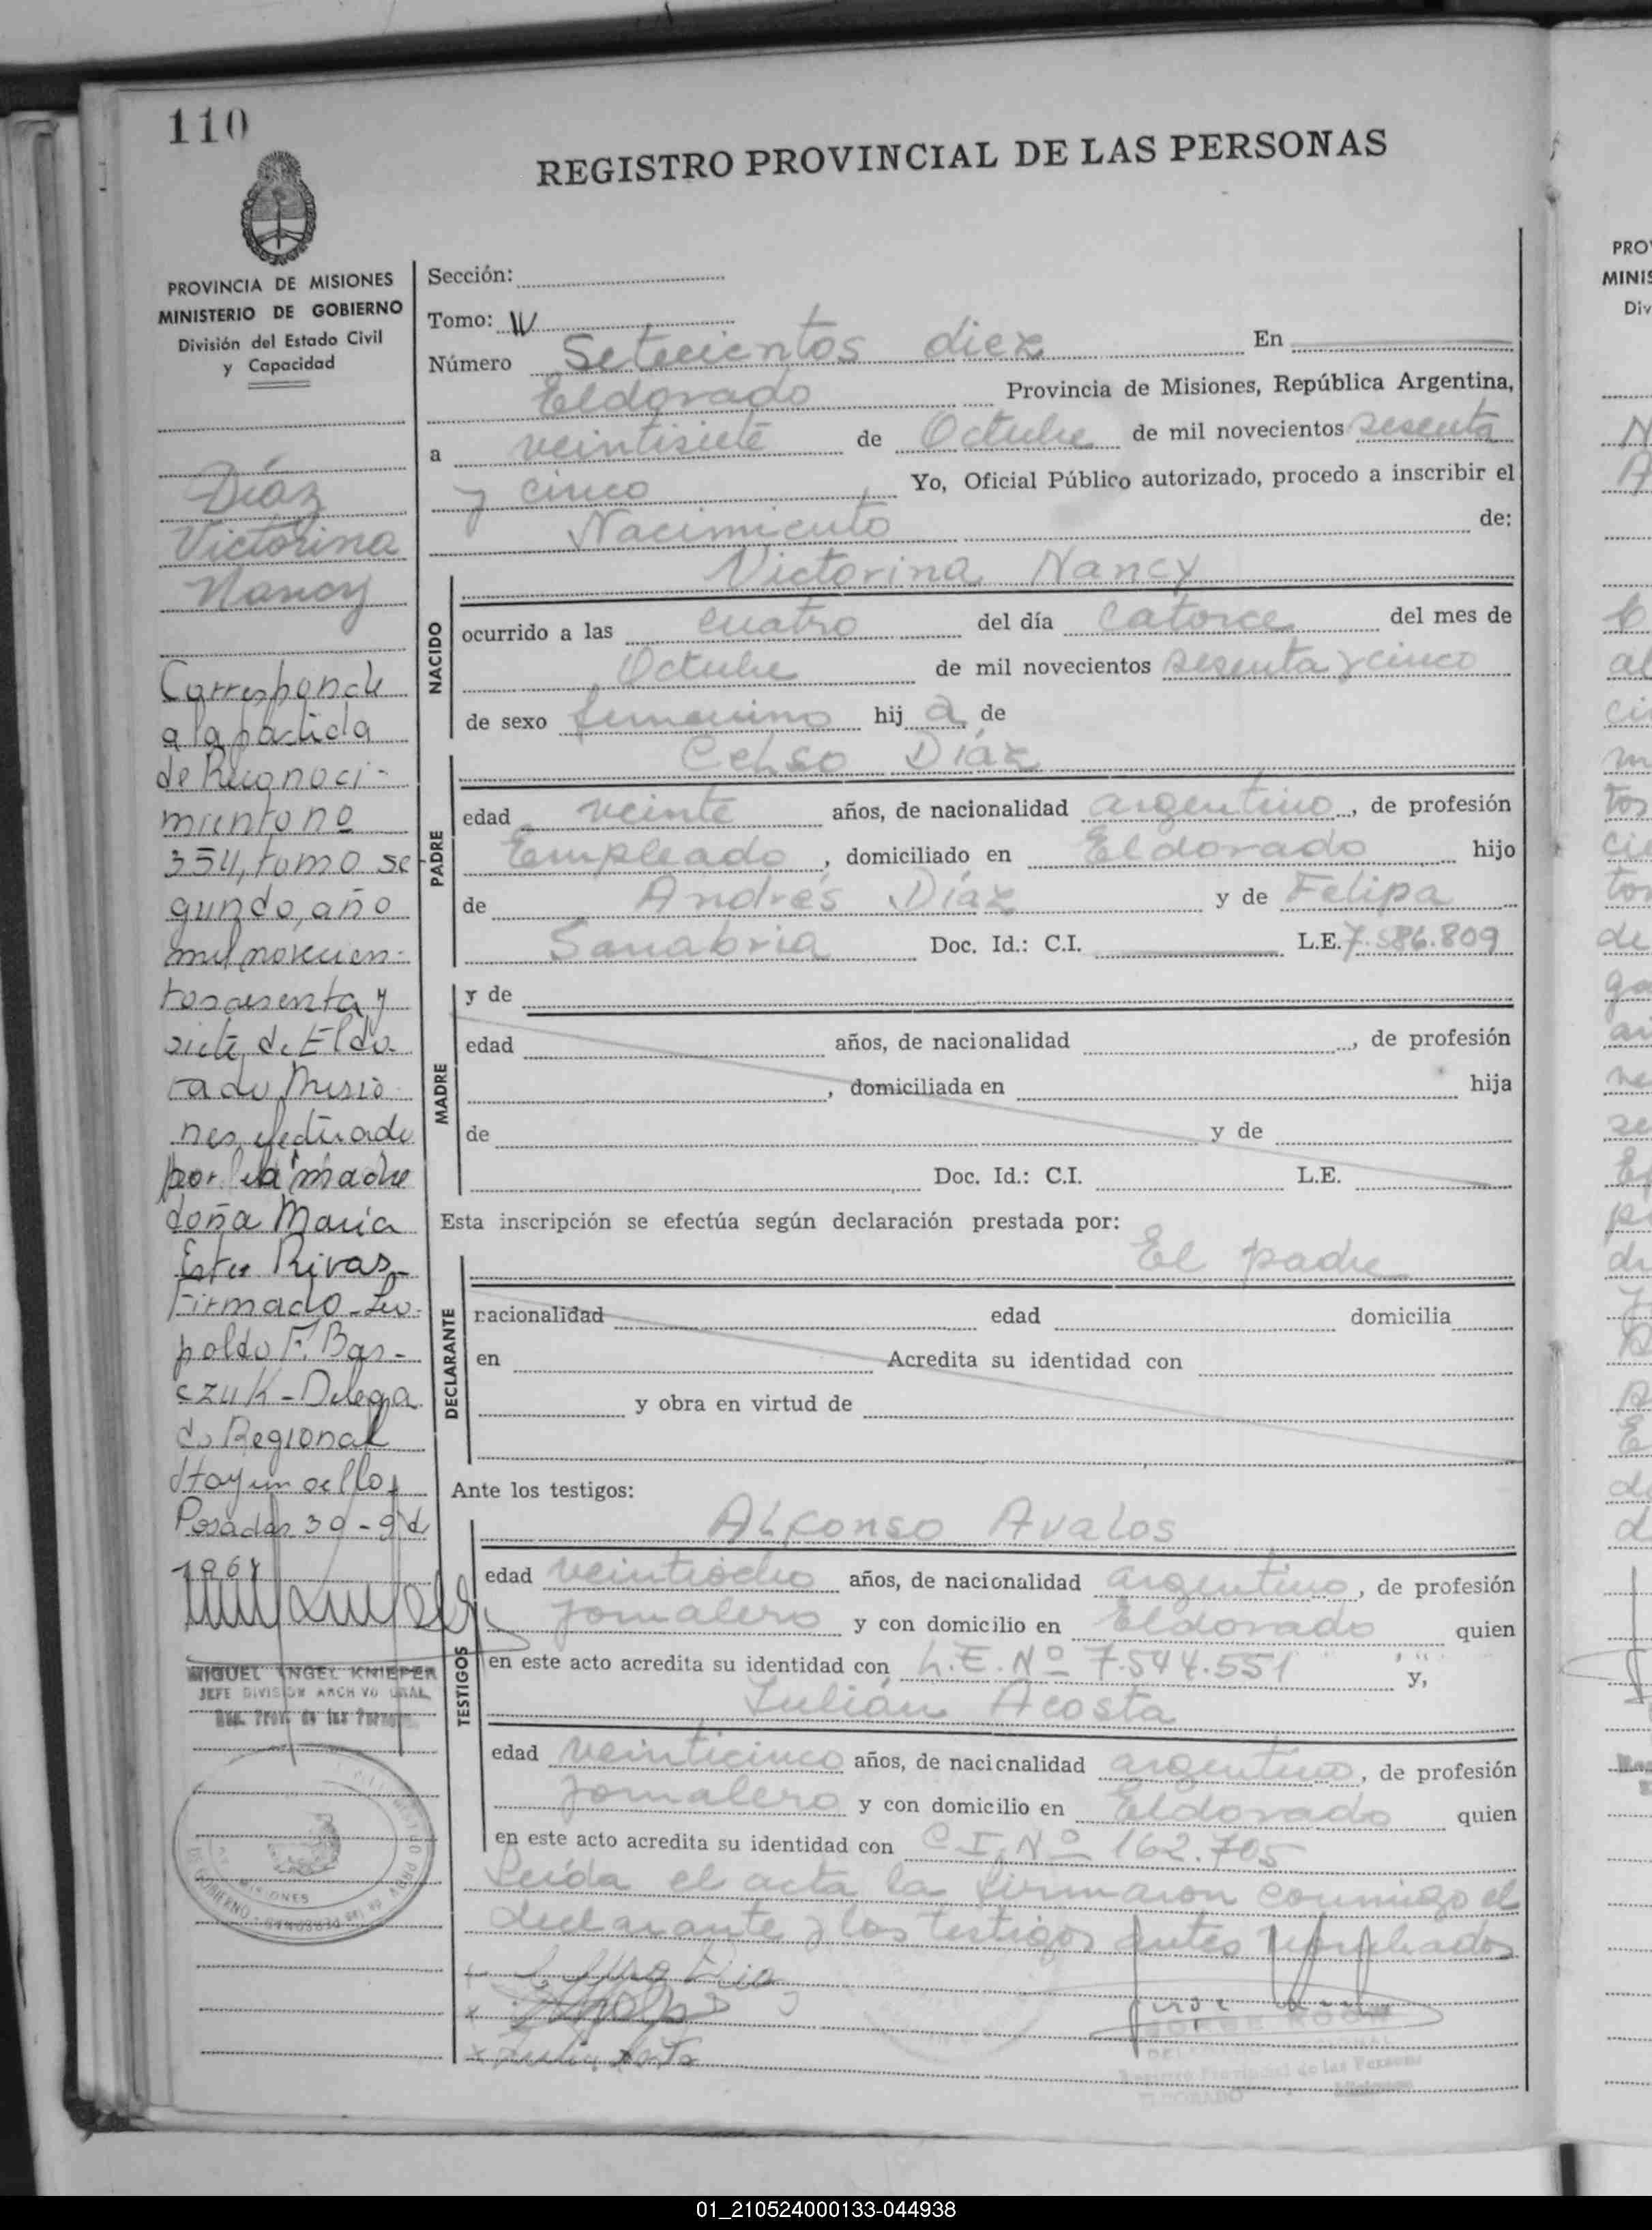 110
REGISTRO PROVINCIAL DE LAS PERSONAS
PROVINCIA DE MISIONES
MINISTERIO DE GOBIERNO
División del Estado Civil
y Capacidad
Díaz
Victorina
Nancy
Corresponde
a la partida
de Reconoci-
miento no
354, tomo se
gundo, año
mil novecien-
tos sesenta y
siete de Eldo
rado Misio
nes, efectuado
por la madre
doña María
Ester Rivas_
Firmado_Leo_
poldo F. Bas_
czuk_Delega
do Regional
Hay un sello_
Posadas 30-9 d
196
MIGUEL ANGEL KNIEPER
JEFE DIVISION ARCHIVO GRAL.
Reg. Prov. de las Personas
Sección:
Tomo: IV
Número Setecientos diez En
Eldorado Provincia de Misiones, República Argentina,
a veintisiete de Octubre de mil novecientos sesenta
y cinco Yo, Oficial Público autorizado, procedo a inscribir el
Nacimiento de:
Victorina Nancy
NACIDO
ocurrido a las cuatro del día catorce del mes de
Octubre de mil novecientos sesenta y cinco
de sexo femenino hij a de
Celso Díaz
PADRE
edad veinte años, de nacionalidad argentino, de profesión
Empleado, domiciliado en Eldorado hijo
de Andrés Díaz y de Felipa
Sanabria Doc. Id.: C.I. L.E. 7.586.809
MADRE
y de
edad años, de nacionalidad , de profesión
, domiciliada en hija
de y de
Doc. Id.: C.I. L.E.
Esta inscripción se efectúa según declaración prestada por:
El padre
DECLARANTE
nacionalidad edad domicilia
en Acredita su identidad con
y obra en virtud de
Ante los testigos:
Alfonso Avalos
TESTIGOS
edad veintiocho años, de nacionalidad argentino, de profesión
Jornalero y con domicilio en Eldorado quien
en este acto acredita su identidad con L.E. Nº 7.544.551 y,
Julián Acosta
edad veinticinco años, de nacionalidad argentino, de profesión
Jornalero y con domicilio en Eldorado quien
en este acto acredita su identidad con C.I. Nº 162.705
Leída el acta la firmaron conmigo el
declarante y los testigos antes nombrados
JORGE KOCH
Registro Provincial de las Personas
ELDORADO Misiones
PRO
MINIS
Div
01_210524000133-044938